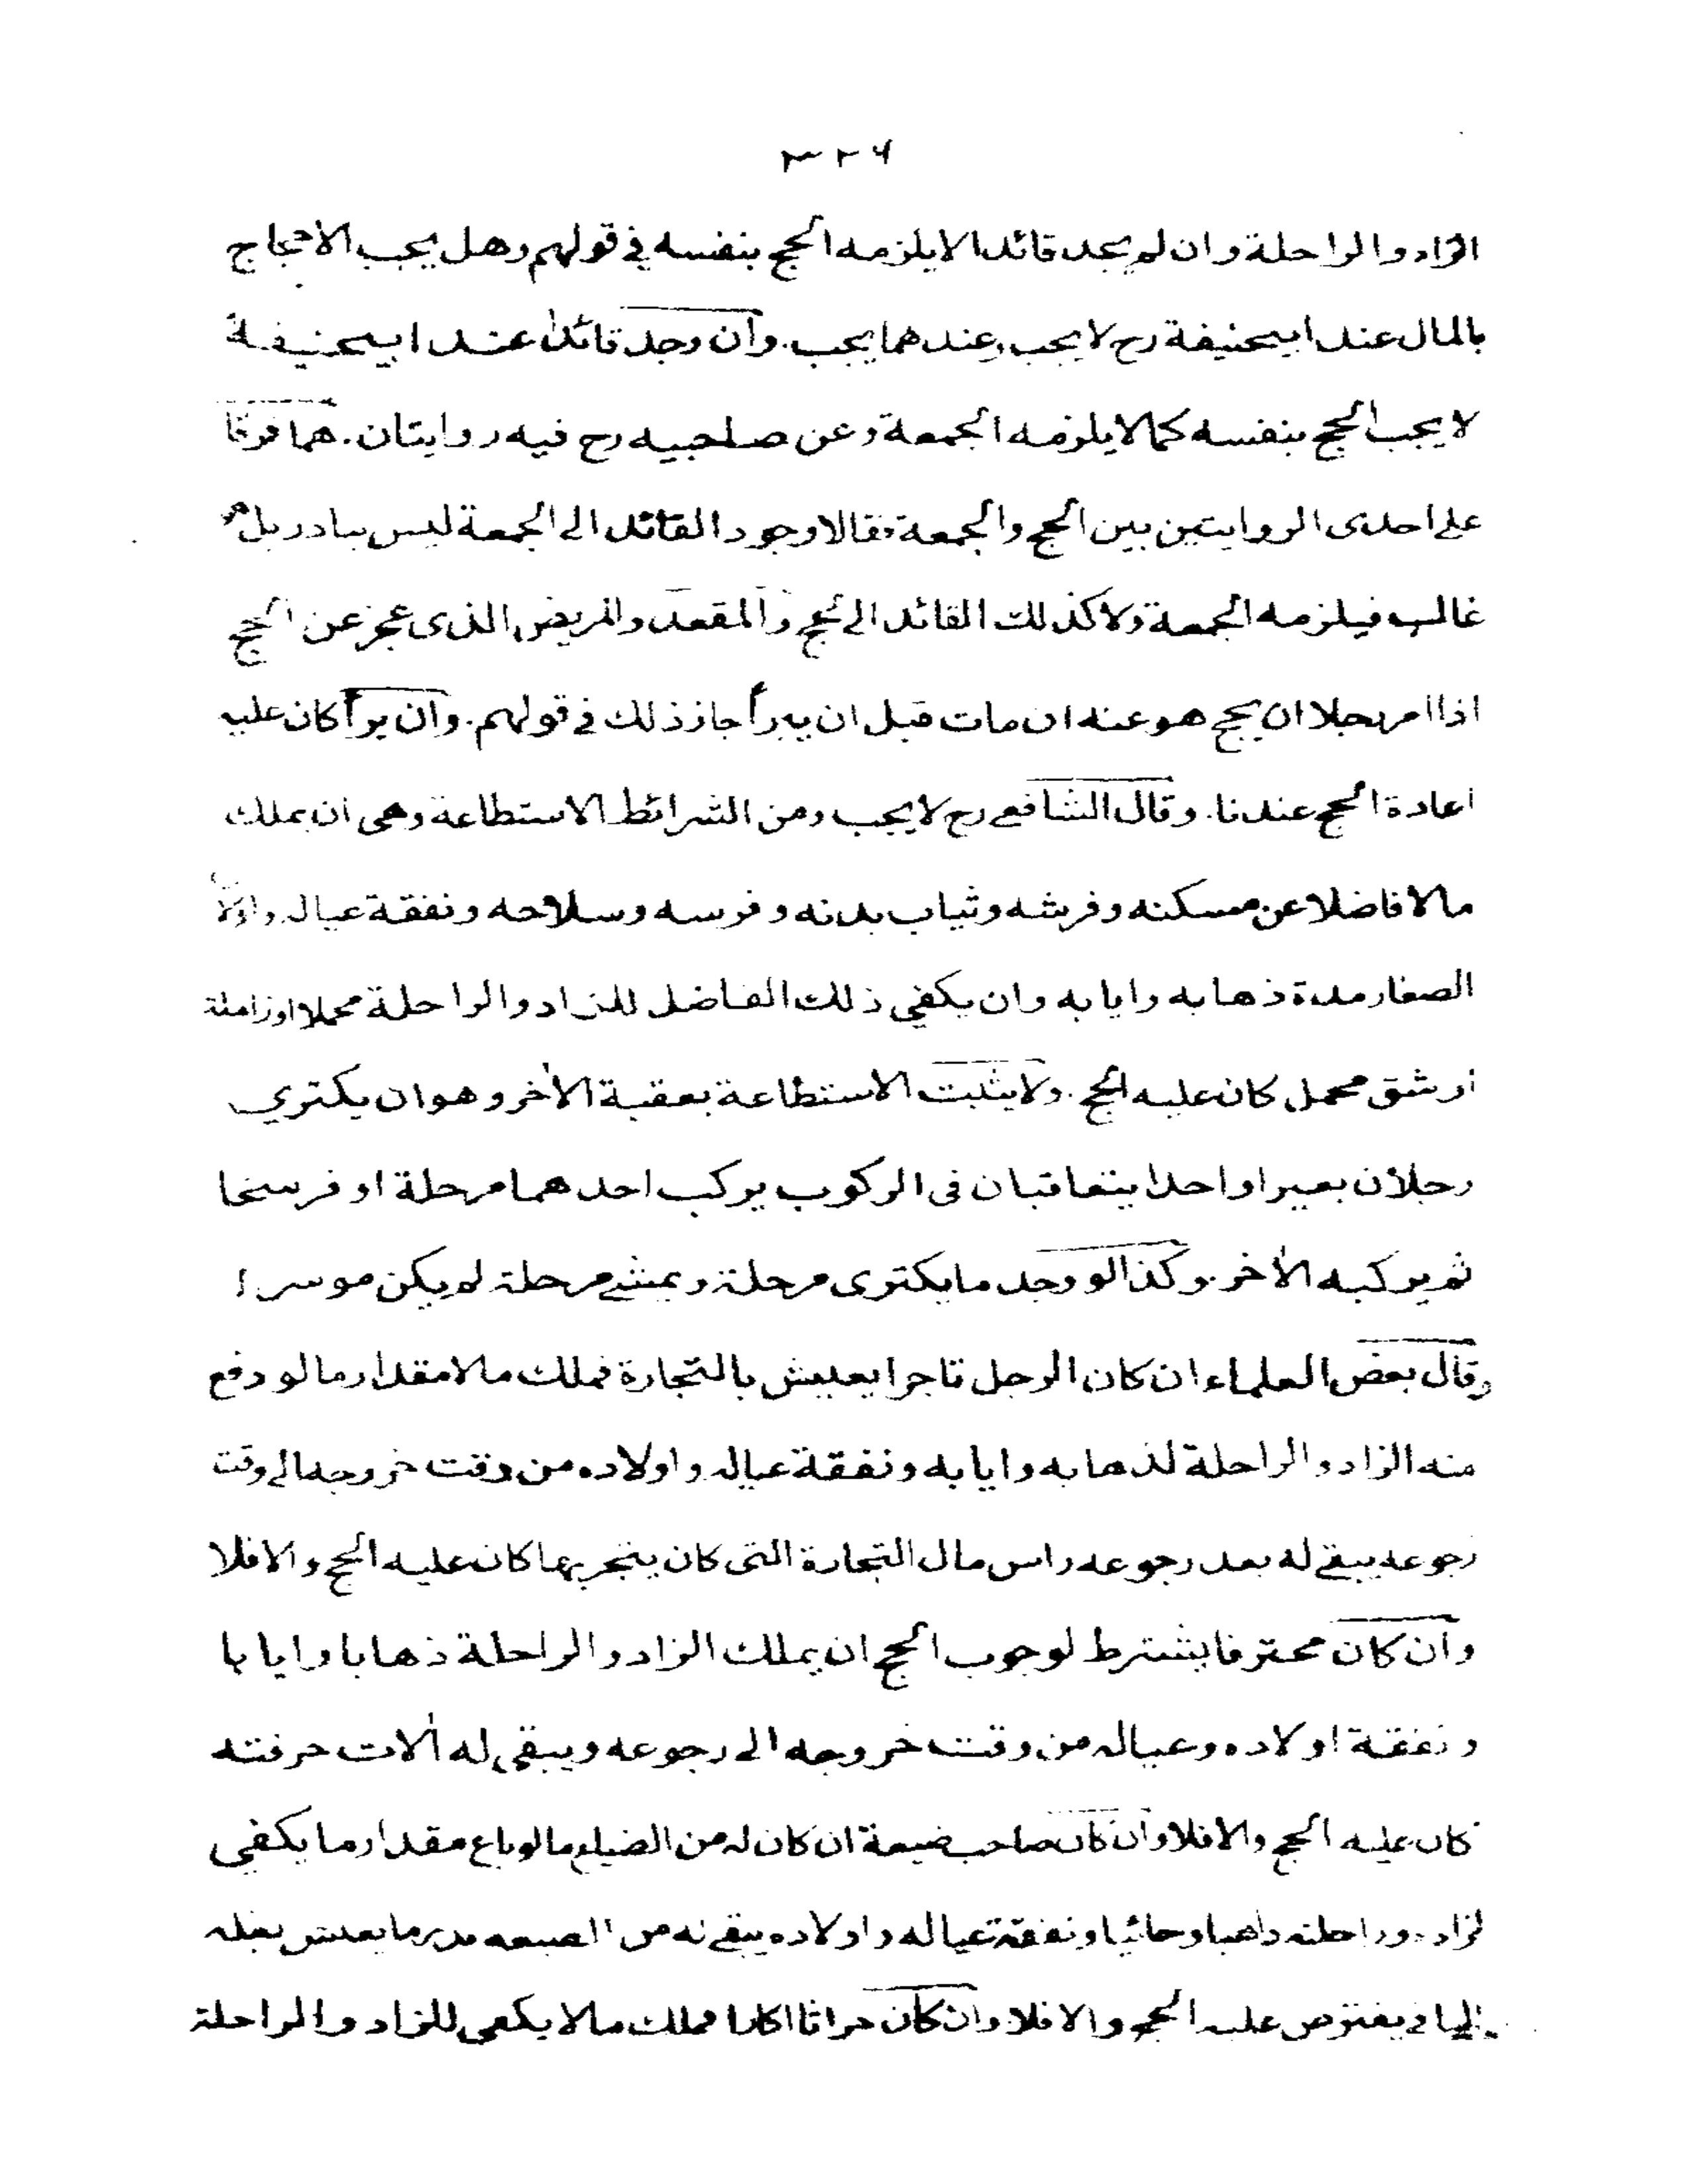 ٣٢٦
الزاد والراحلة وان لم يجد قائدا لا يلزمه الحج بنفسه في قولهم وهل يجب الاحجاج
بالمال عند ابيحنيفة رح لا يجب وعندهما يجب. وان وجد قائدا عند ابيحنيفة
لا يجب الحج بنفسه كما لا يلزمه الجمعة وعن صاحبيه رح فيه روايتان. هما فرقا
على احدى الروايتين بين الحج والجمعة فقالا وجود القائد الى الجمعة ليس بنادر بل هو
غالب فيلزمه الجمعة ولا كذلك القائد الى الحج والمقعد والمريض الذى عجز عن الحج
اذا امر رجلا ان يحج هو عنه ان مات قبل ان يبرأ جاز ذلك في قولهم. وان برأ كان عليه
اعادة الحج عندنا. وقال الشافعي رح لا يجب ومن الشرائط الاستطاعة وهى ان يملك
مالا فاضلا عن مسكنه وفرشه وثياب بدنه وفرسه وسلاحه ونفقة عياله واولاده
الصغار مدة ذهابه وايابه وان يكفي ذلك الفاضل للزاد والراحلة محملا او زاملة
او شق محمل كان عليه الحج. ولا يثبت الاستطاعة بعقبة الأخر وهو ان يكتري
رجلان بعيرا واحدا يتعاقبان فى الركوب يركب احدهما مرحلة او فرسخا
ثم يركبه الأخر. وكذا لو وجد ما يكترى مرحلة ويمشي مرحلة لم يكن موسرا
وقال بعض العلماء ان كان الرجل تاجرا يعيش بالتجارة فملك مالا مقدار ما لو دفع
منه الزاد والراحلة لذهابه وايابه ونفقة عياله واولاده من وقت خروجه الى وقت
رجوعه يبقى له بعد رجوعه راس مال التجارة التى كان يتجر بها كان عليه الحج والا فلا
وان كان محترفا يشترط لوجوب الحج ان يملك الزاد والراحلة ذهابا وايابا
ونفقة اولاده وعياله من وقت خروجه الى رجوعه ويبقى له ألات حرفته
كان عليه الحج والا فلا وان كان صاحب ضيعة ان كان له من الضياع ما لو باع مقدار ما يكفي
لزاده وراحلته ذاهبا وجائيا ونفقة عياله واولاده يبقى له من الضيعة قدر ما يعيش بغلة
الباقي يفترض عليه الحج والا فلا وان كان حراثا اكارا فملك مالا يكفى للزاد والراحلة